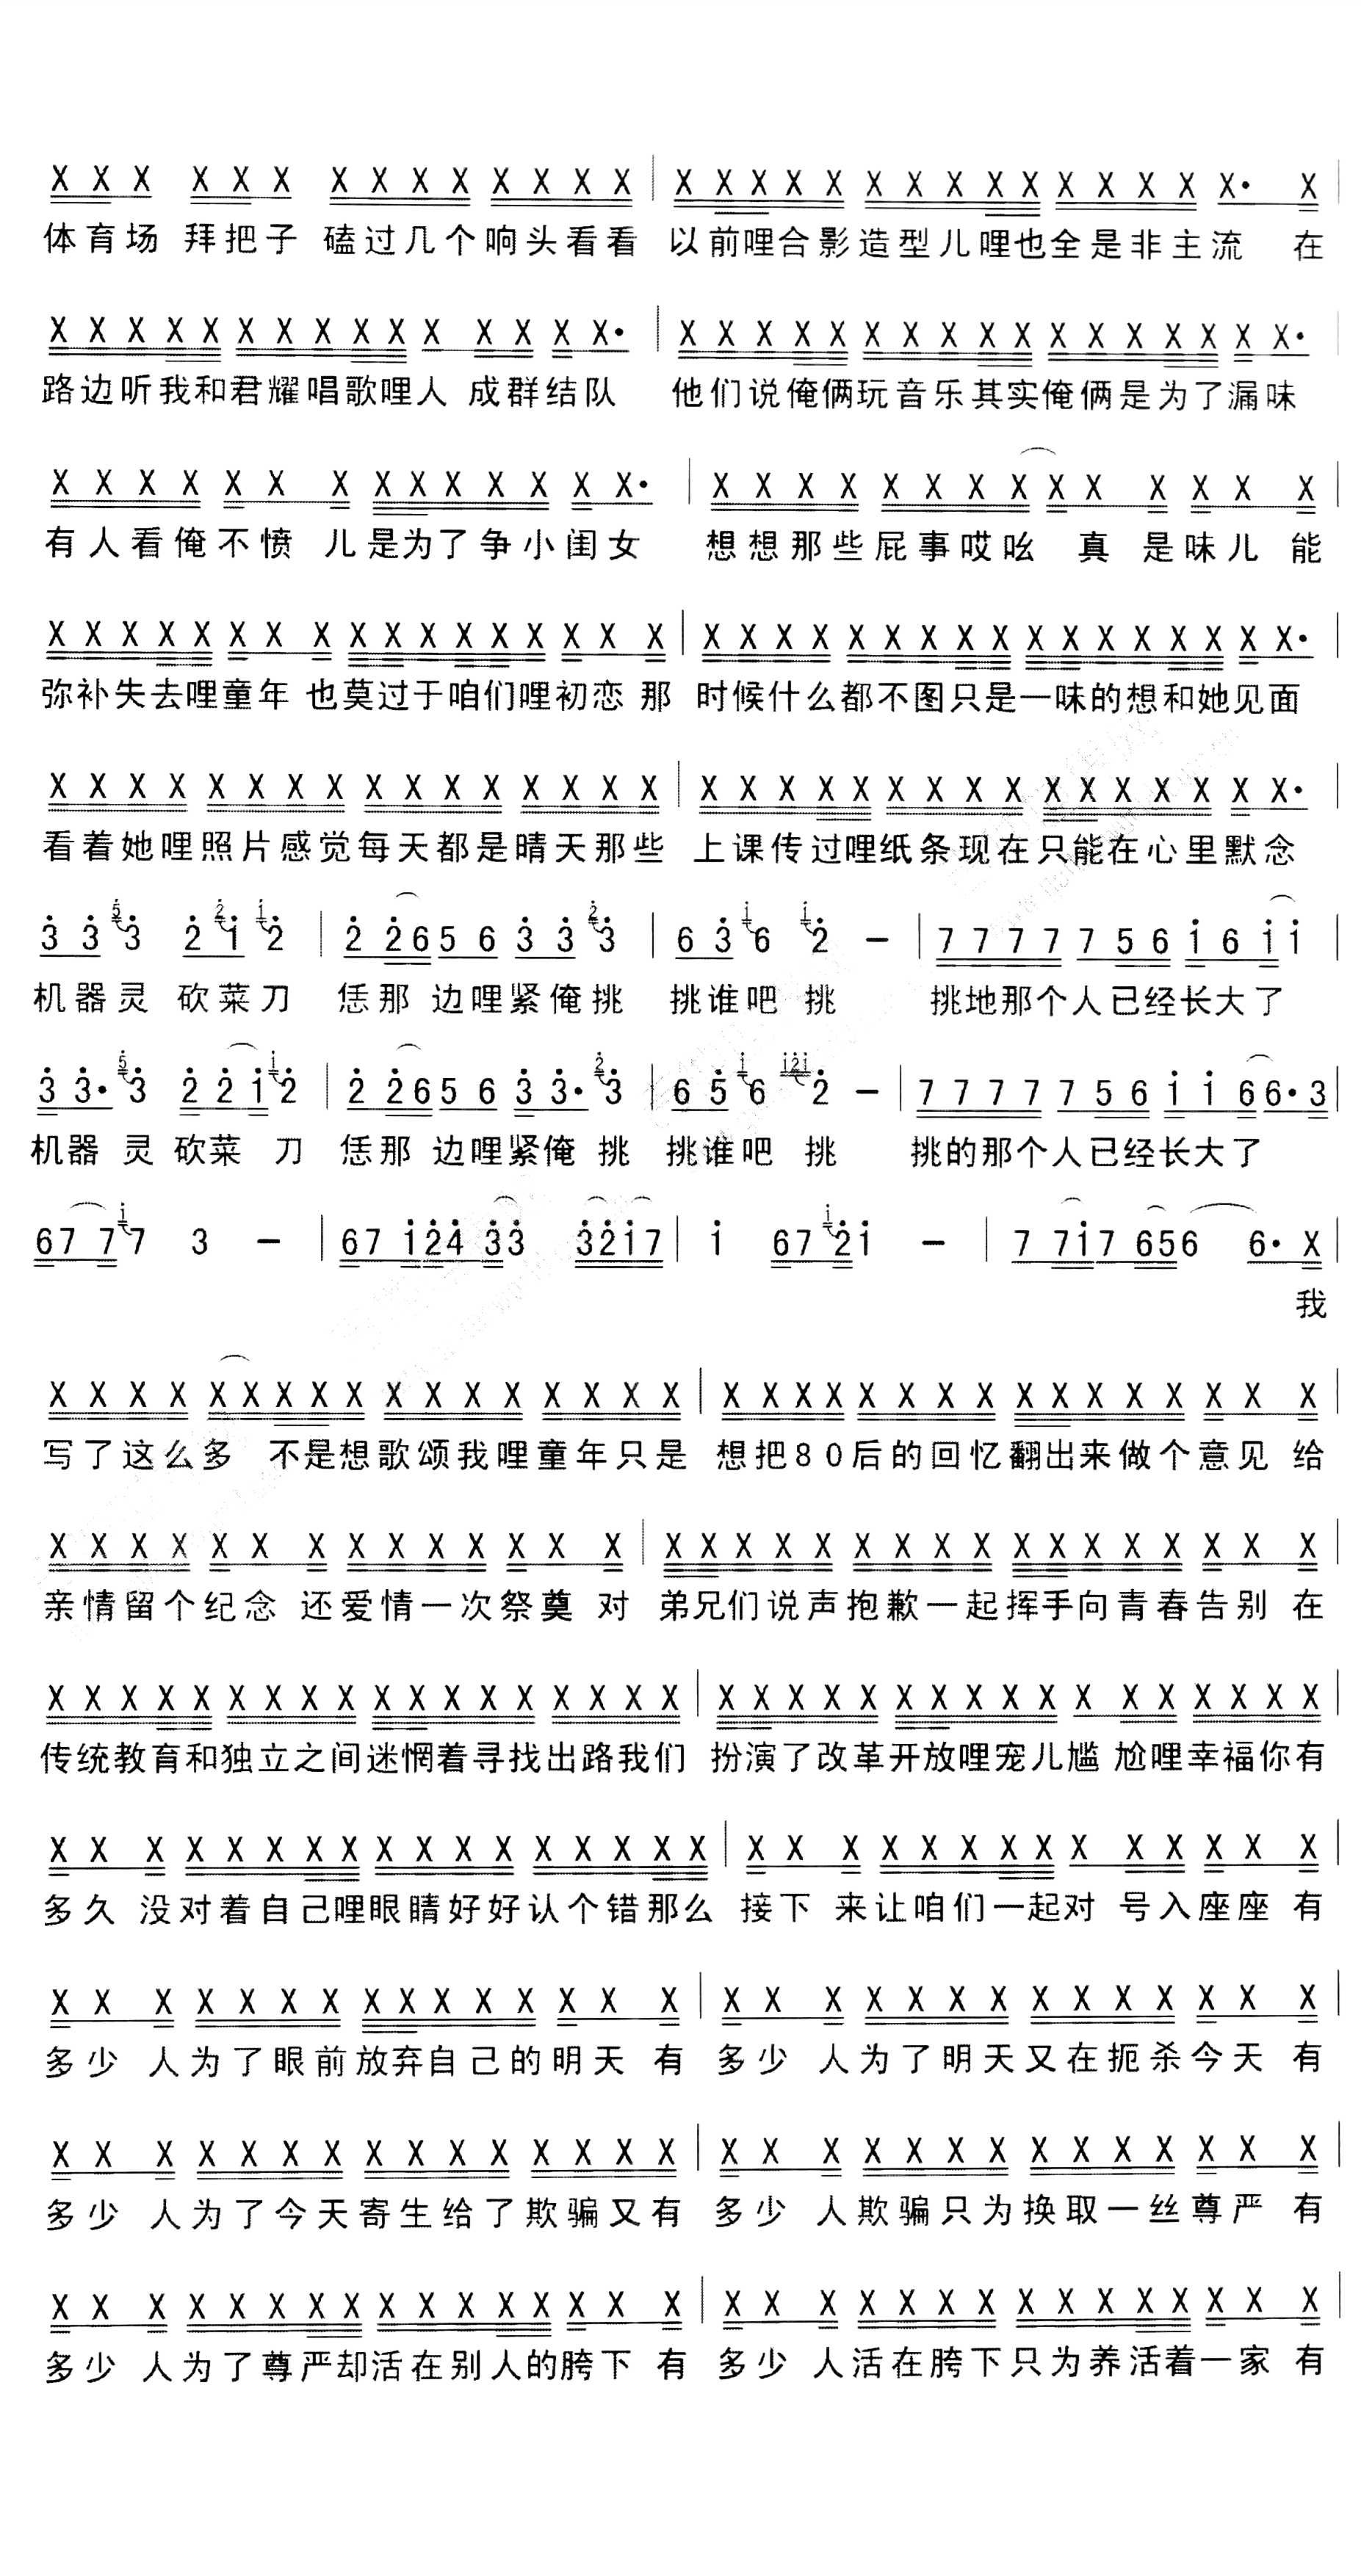 X X X X X X X X X X X X X X | X X X X X X X X X X X X X X X· X |
体育场 拜把子 磕过几个响头看看 以前哩合影造型儿哩也全是非主流 在
X X X X X X X X X X X X X X X· | X X X X X X X X X X X X X X X X X·
路边听我和君耀唱歌哩人 成群结队 他们说俺俩玩音乐其实俺俩是为了漏味
X X X X X X X X X X X X X X· | X X X X X X X X X X X X X X |
有人看俺不愤 儿是为了争小闺女 想想那些屁事哎吆 真 是味儿能
X X X X X X X X X X X X X X X X X | X X X X X X X X X X X X X X X X X· |
弥补失去哩童年 也莫过于咱们哩初恋 那 时候什么都不图只是一味的想和她见面
X X X X X X X X X X X X X X X X | X X X X X X X X X X X X X X X X· |
看着她哩照片感觉每天都是晴天那些 上课传过哩纸条现在只能在心里默念
3 3 5 3 2 2 1 1 2 | 2 2 6 5 6 3 3 2 3 | 6 3 1 6 1 2 – | 7 7 7 7 7 5 6 1 6 1 1 |
机器灵 砍菜刀 恁那 边哩紧俺挑 挑谁吧 挑 挑地那个人已经长大了
3 3· 5 3 2 2 1 1 2 | 2 2 6 5 6 3 3· 2 3 | 6 5 1 6 1 2 1 2 – | 7 7 7 7 7 5 6 1 1 6 6· 3 |
机器 灵 砍菜 刀 恁那 边哩紧俺 挑 挑谁吧 挑 挑的那个人已经长大了
6 7 7 1 7 3 – | 6 7 1 2 4 3 3 3 2 1 7 | 1 6 7 1 2 1 – | 7 7 1 7 6 5 6 6· X |
我
X X X X X X X X X X X X X X X X X | X X X X X X X X X X X X X X X X |
写了这么多 不是想歌颂我哩童年只是 想把80后的回忆翻出来做个意见 给
X X X X X X X X X X X X X X | X X X X X X X X X X X X X X X X X |
亲情留个纪念 还爱情一次祭奠 对 弟兄们说声抱歉一起挥手向青春告别 在
X X X X X X X X X X X X X X X X X X | X X X X X X X X X X X X X X X X X |
传统教育和独立之间迷惘着寻找出路我们 扮演了改革开放哩宠儿尴 尬哩幸福你有
X X X X X X X X X X X X X X X X X | X X X X X X X X X X X X X X |
多久 没对着自己哩眼睛好好认个错那么 接下 来让咱们一起对 号入座座 有
X X X X X X X X X X X X X X X | X X X X X X X X X X X X X X |
多少 人为了眼前放弃自己的明天 有 多少 人为了明天又在扼杀今天 有
X X X X X X X X X X X X X X X | X X X X X X X X X X X X X X |
多少 人为了今天寄生给了欺骗又有 多少 人欺骗只为换取一丝尊严 有
X X X X X X X X X X X X X X X X | X X X X X X X X X X X X X X X |
多少 人为了尊严却活在别人的胯下 有 多少 人活在胯下只为养活着一家 有